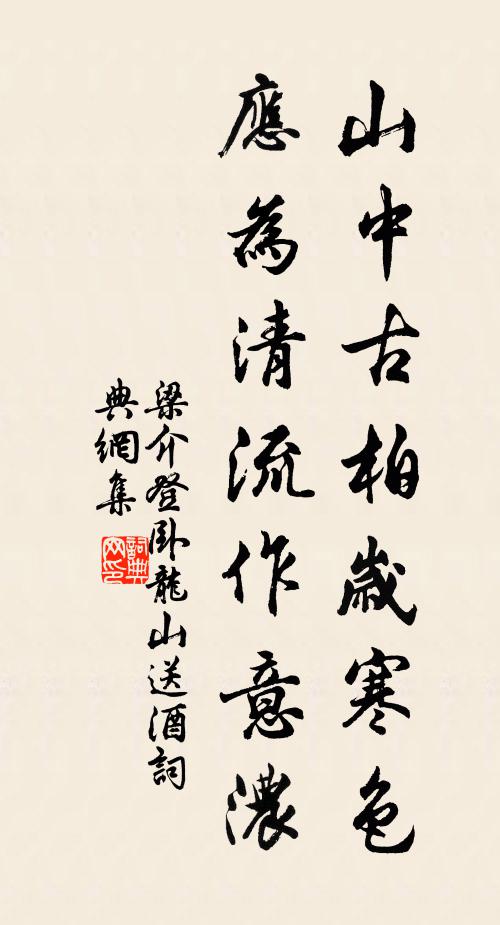 山中古柏歲寒色
應為清流作意濃
梁介登臥龍山送酒詞
典網集
詞典
网印